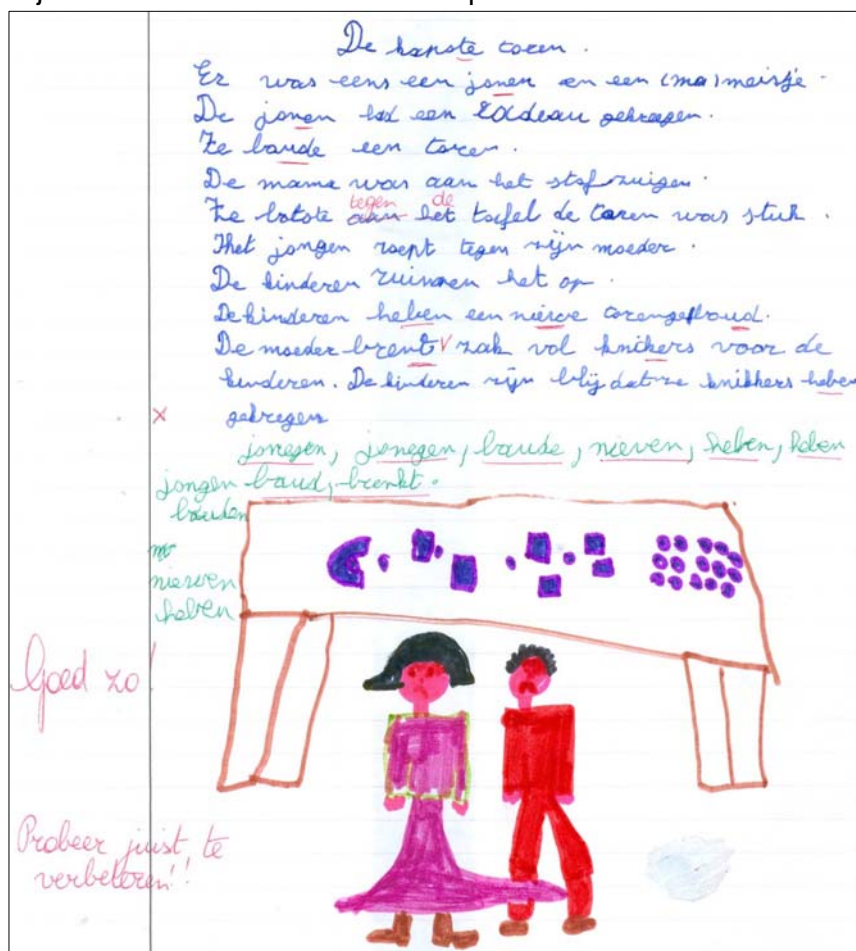 De kapote toren.
Er was eens een jonen en een (ma) meisje.
De jonen had een kadeau gekregen.
Ze baude een toren.
De mama was aan het stofzuigen.
tegen de
Ze botste aan het tafel de toren was stuk.
Het jongen roept tegen zijn moeder.
De kinderen ruimen het op.
De kinderen heben een nieuve toren gebaud.
De moeder brent V zak vol knikers voor de
kinderen. De kinderen zijn blij dat ze knikkers heben
x gekregen
jonegen, jonegen, baude, nieven, heben, heben
jongen baud, brenkt.
bauden
nieuwen
heben
Goed zo!
Probeer juist te
verbeteren!!